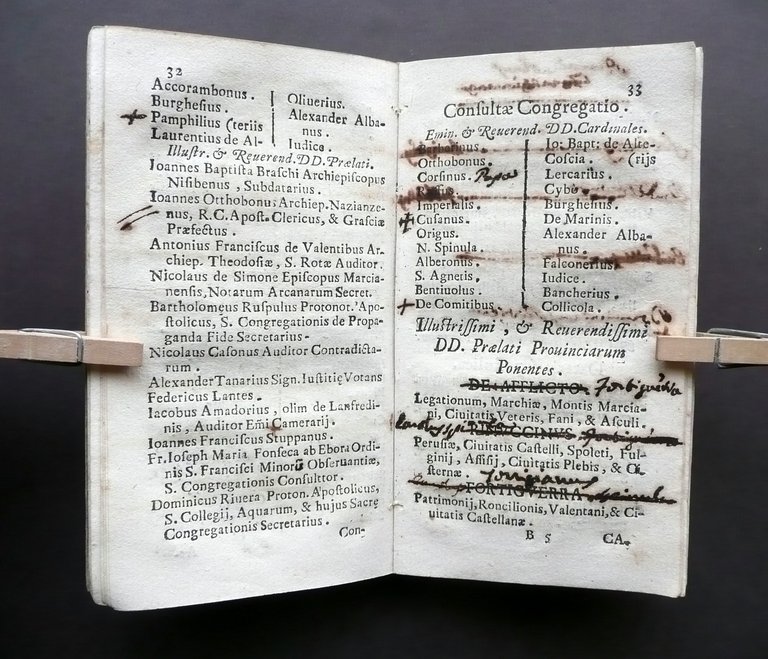 32
Accorambonus.
Burghesius.
Pamphilius (teriis
Laurentius de Al-
Oliuerius.
Alexander Alba-
nus.
Iudice.
Illustr. & Reuerend. DD. Prælati.
Ioannes Baptista Braschi Archiepiscopus
Nisibenus, Subdatarius.
Ioannes Otthobonus, Archiep. Nazianze-
nus, R.C. Apost. Clericus, & Grasciæ
Præfectus.
Antonius Franciscus de Valentibus Ar-
chiep. Theodosiæ, S. Rotæ Auditor.
Nicolaus de Simone Episcopus Marcia-
nensis, Notarum Arcanarum Secret.
Bartholomeus Ruspulus Protonot. Apo-
stolicus, S. Congregationis de Propa-
ganda Fide Secretarius.
Nicolaus Casonus Auditor Contradicta-
rum.
Alexander Tanarius Sign. Iustitię Votans
Federicus Lantes.
Iacobus Amadorius, olim de Lanfredi-
nis, Auditor Emi Camerarij.
Ioannes Franciscus Stuppanus.
Fr. Ioseph Maria Fonseca ab Ebora Ordi-
nis S. Francisci Minorū Obseruantiæ,
S. Congregationis Consultor.
Dominicus Riuera Proton. Apostolicus,
S. Collegij, Aquarum, & hujus Sacrę
Congregationis Secretarius.
Con-
33
Consultæ Congregatio.
Emin. & Reuerend. DD. Cardinales.
Barberinus.
Otthobonus.
Corsinus. Papa
Ruffus.
Imperialis.
Cusanus.
Origus.
N. Spinula.
Alberonus.
S. Agnetis.
Bentiuolus.
De Comitibus.
Io: Bapt: de Alte-
Coscia. (rijs
Lercarius.
Cybo.
Burghesius.
De Marinis.
Alexander Alba-
nus.
Falconerius.
Iudice.
Bancherius.
Collicola.
Illustrissimi, & Reuerendissimi
DD. Prælati Prouinciarum
Ponentes.
DE AFFLICTO. Fortiguerra
Legationum, Marchiæ, Montis Marcia-
ni, Ciuitatis Veteris, Fani, & Asculi.
Perusiæ, Ciuitatis Castelli, Spoleti, Ful-
ginij, Assisij, Ciuitatis Plebis, & Ci-
sternæ.
FORTIGVERRA
Patrimonij, Roncilionis, Valentani, & Ci-
uitatis Castellanæ.
B 5
CA-